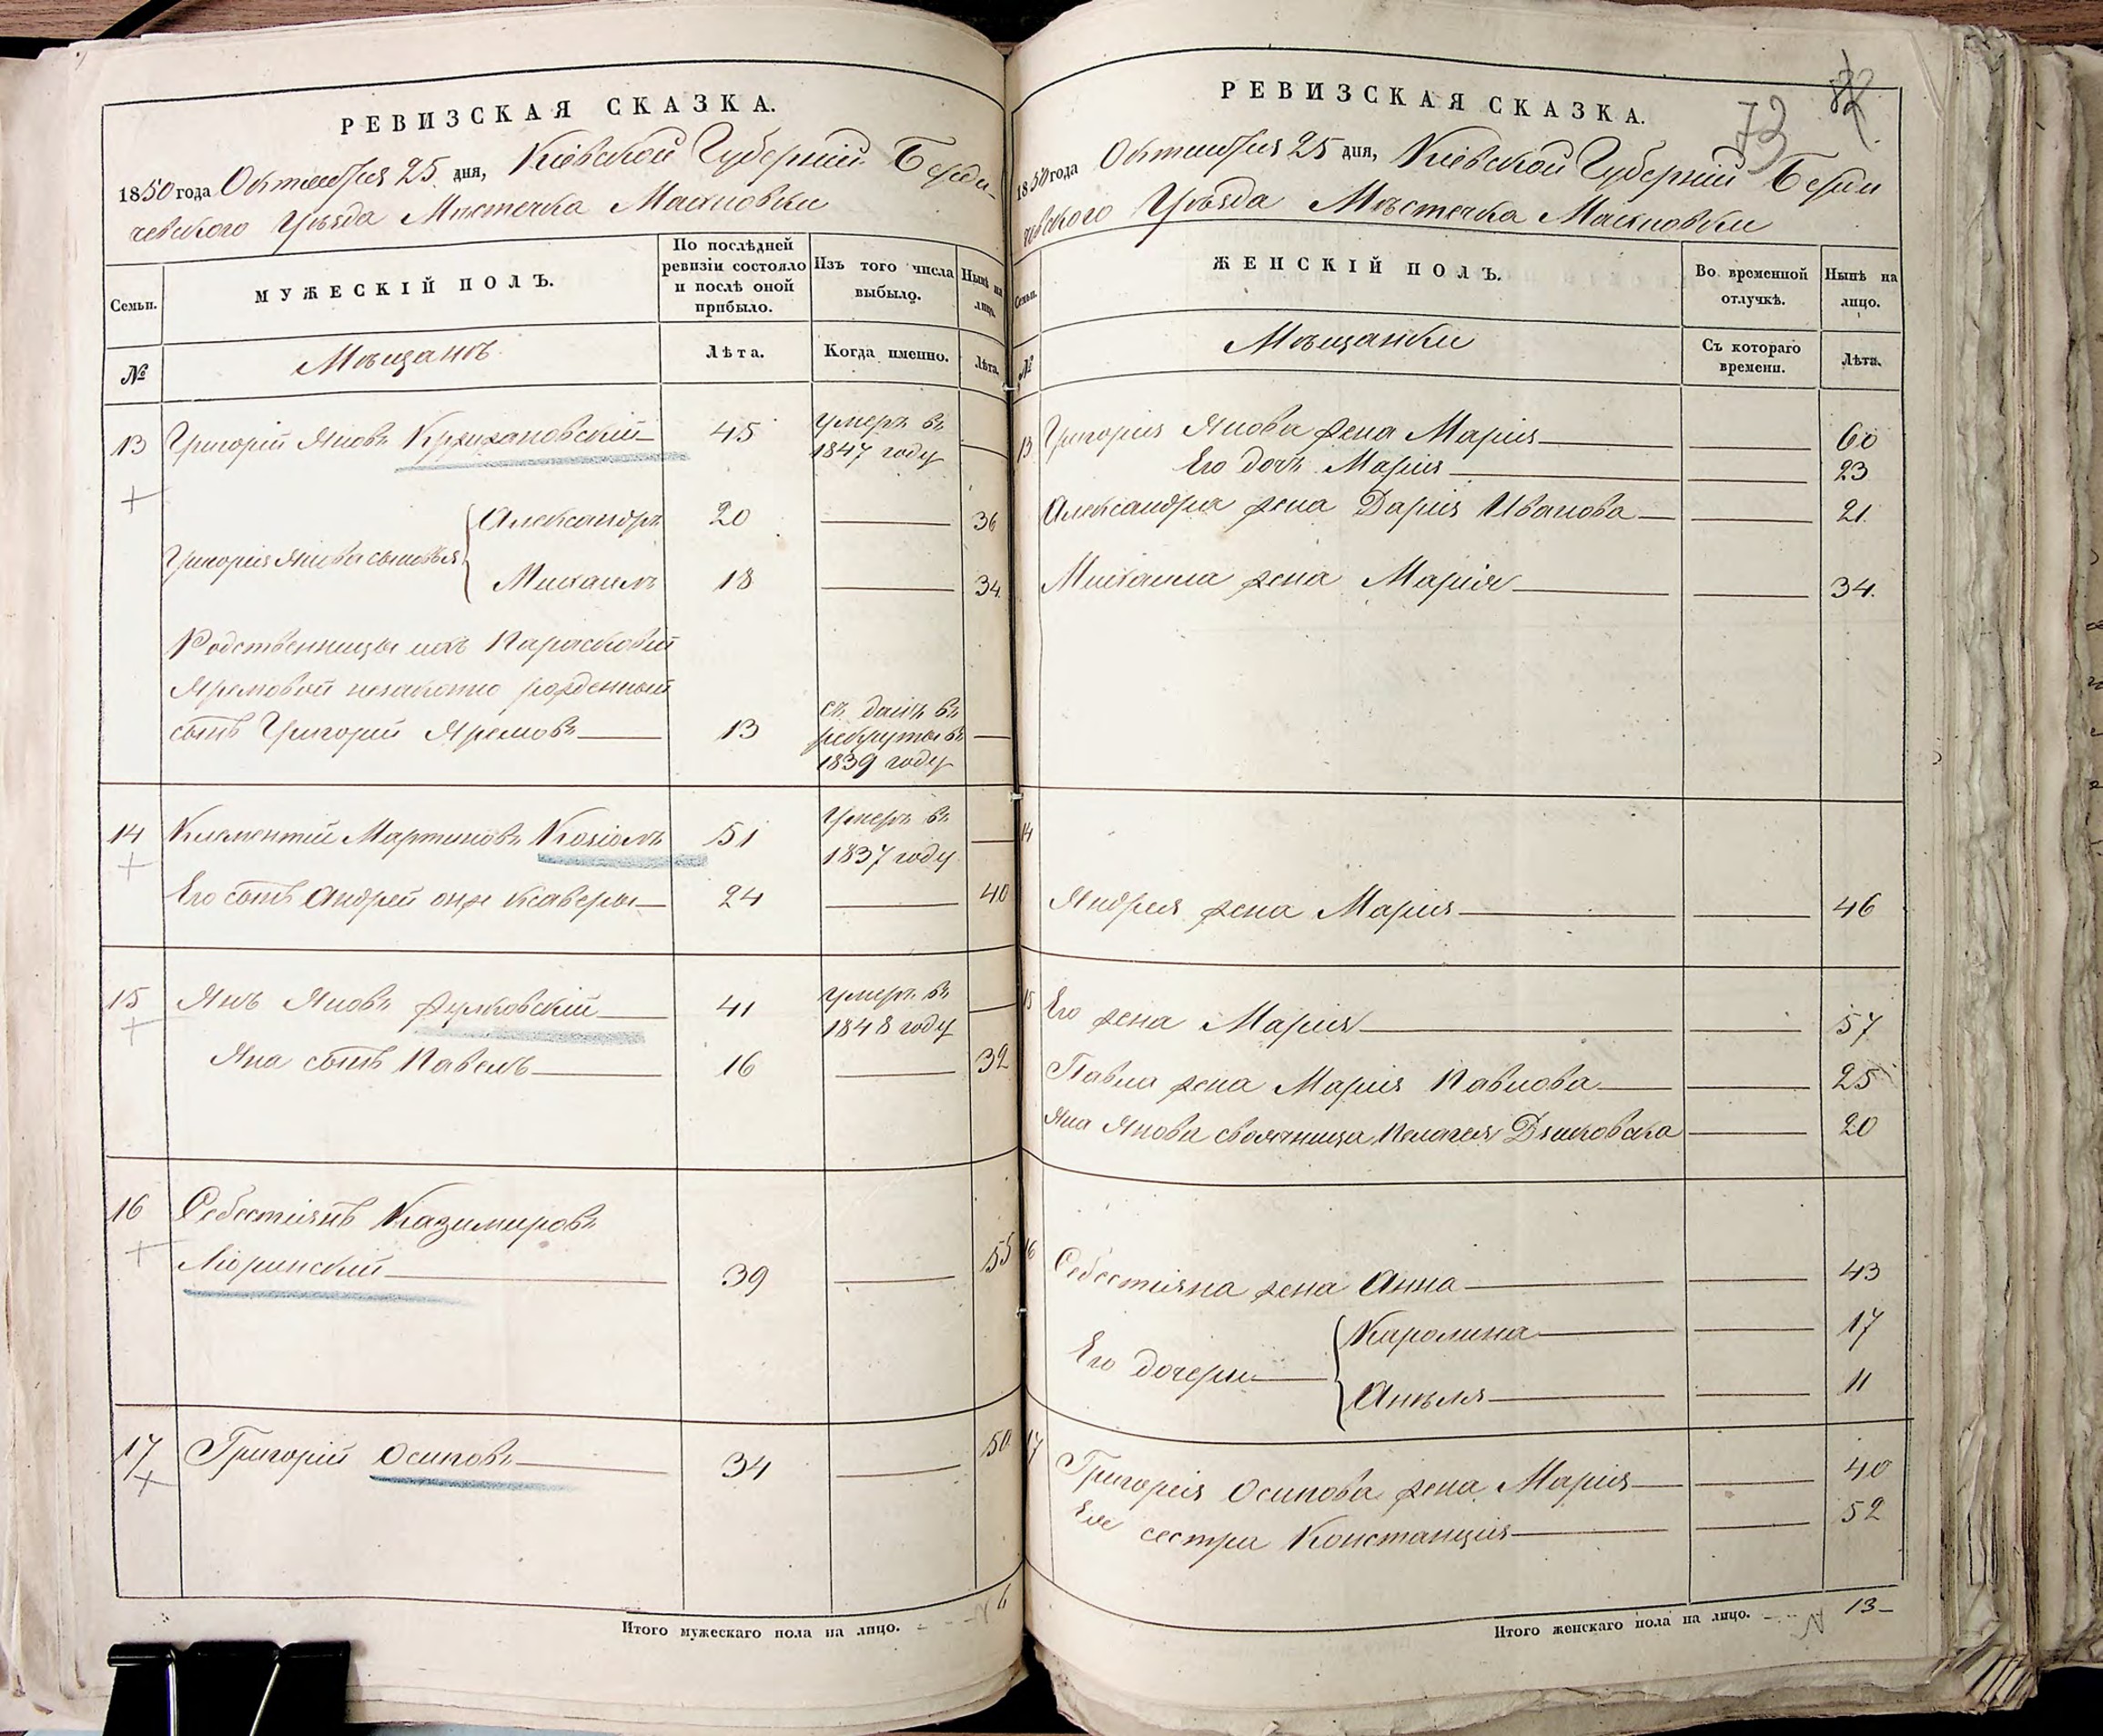 РЕВИЗСКАЯ СКАЗКА.
1850 года Октября 25 дня, Кіевской Губерніи Берди-
чевского Уѣзда Мѣстечка Махновки
Семьи.
МУЖЕСКІЙ ПОЛЪ.
По послѣдней
ревизіи состояло
и послѣ оной
прибыло.
Изъ того числа
выбыло.
Нынѣ на
лицо.
№
Мѣщанъ
Лѣта.
Когда именно.
Лѣта.
13 Григорій Яновъ Крыжановскій 45 умеръ въ
1847 году
Александръ 20 36
Григорія Янова сыновья
Михаилъ 18 34
Родственницы ихъ Парасковіи
Яремовой незаконно рожденный
сынъ Григорій Яремовъ 13 съ данъ въ
рекруты въ
1839 году
14 Климентій Мартиновъ Козіолъ 51 Умеръ въ
1837 году
Его сынъ Андрей онже Ксаверы 24 40
15 Янъ Яновъ 41 умеръ въ
1848 году
Яна сынъ Павелъ 16 32
16 Себестіянъ Казимировъ
39 55
17 Григорій Осиповъ 34 50
Итого мужескаго пола на лицо. 6
РЕВИЗСКАЯ СКАЗКА.
73
1850 года Октября 25 дня, Кіевской Губерніи Берди
чевского Уѣзда Мѣстечка Махновки
Семьи.
ЖЕНСКІЙ ПОЛЪ.
Во временной
отлучкѣ.
Нынѣ на
лицо.
№
Мѣщанки
Съ котораго
времени.
Лѣта.
13 Григорія Янова жена Марія 60
Его дочь Марія 23
Александра жена Дарія Иванова 21
Михаила жена Марія 34
14
Андрея жена Марія 46
15 Его жена Марія 57
Павла жена Марія Павлова 25
Яна Янова своячница Пелагея 20
16
Себестіяна жена Анна 43
Каролина 17
Его дочери
Анѣля 11
17 Григорія Осипова жена Марія 40
Ея сестра Констанція 52
Итого женскаго пола на лицо. 13